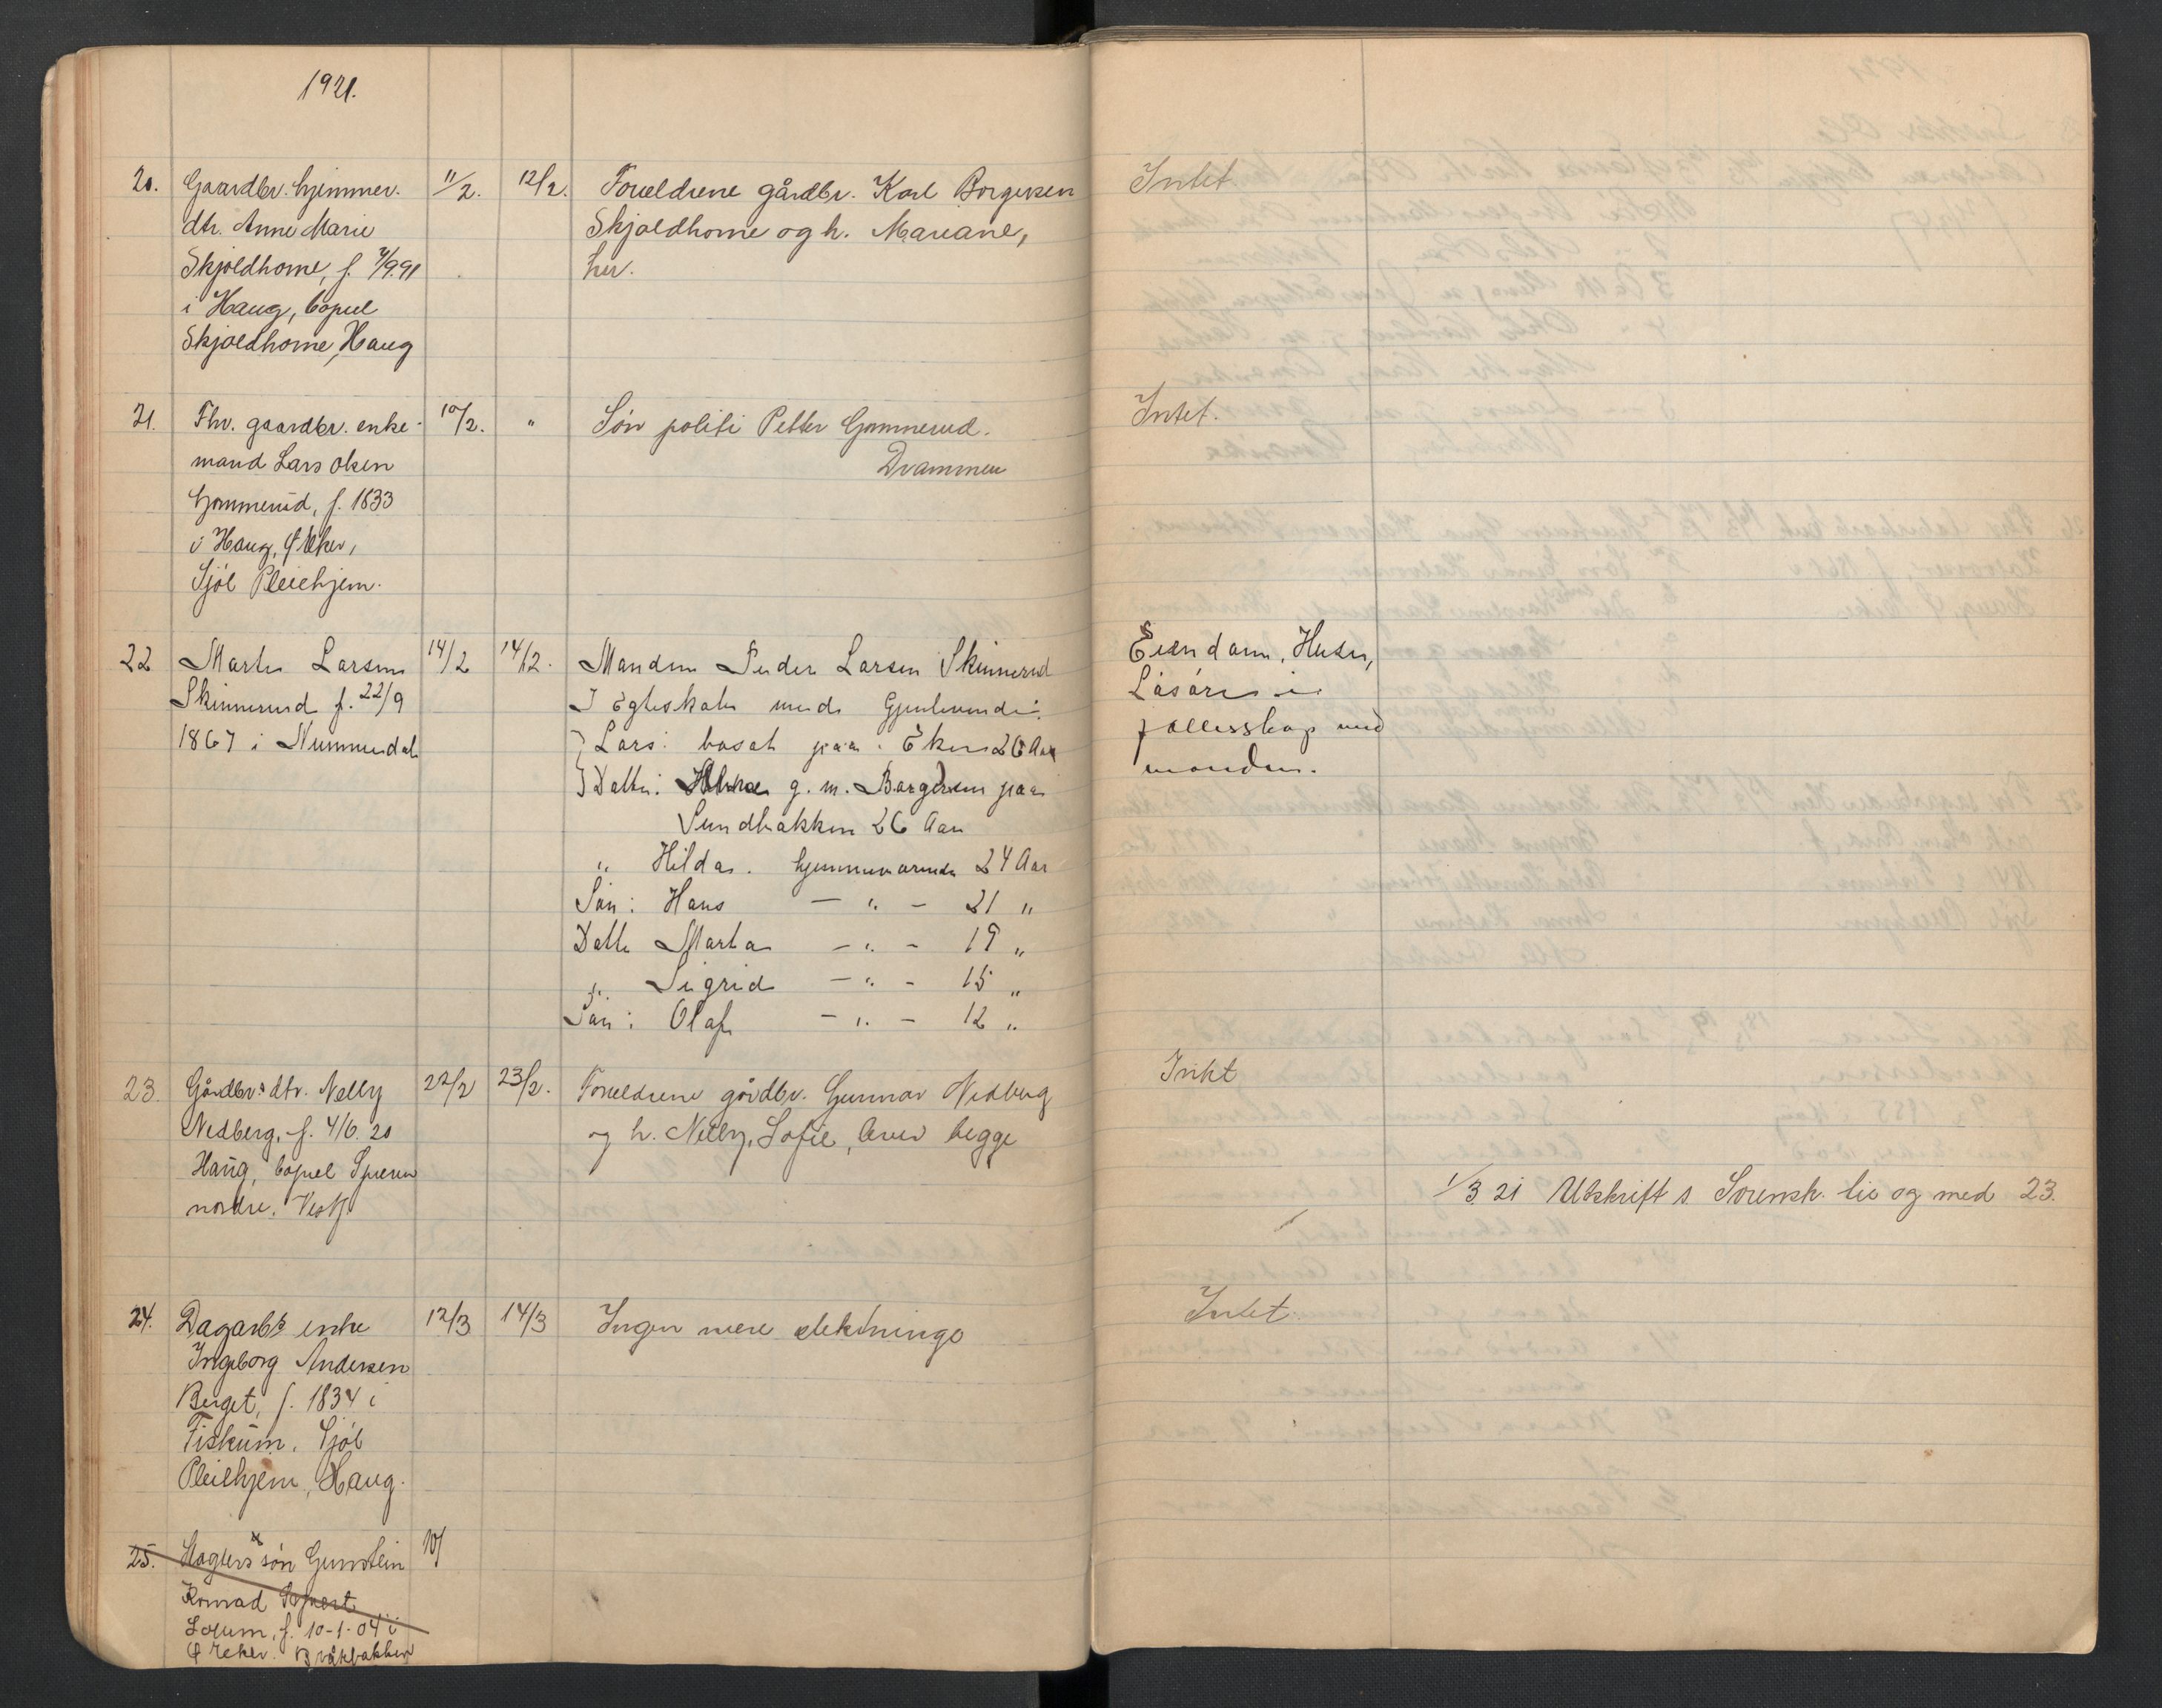 1921.
20. Gaardbr. hjemmev. 11/2. 12/2. Foreldrene gårdbr. Karl Borgersen Intet.
dtr. Anne Marie Skjoldhorne og h. Mariane,
Skjoldhorne, f. 7/9.91 her.
i Haug, bopel
Skjoldhorne, Haug
21. Fhv. gaardbr. enke- 10/2. " Søn politi Petter Gommerud. Intet.
mand Lars Olsen Drammen
Gommerud, f. 1833
i Haug, Ø Eker,
Sjøl Pleiehjem.
22 Marte Larsen 14/2 14/2. Manden Peder Larsen Skinnerud Eiendom, Huser,
Skinnerud f. 22/9 I Egteskab med Gjenlevende: Løsøre i
1867 i Nummedal Lars: bosat paa Eker 26 Aar fællesskap med
Datter: g. m. Borgersen paa manden.
Sundbakken 26 Aar
" Hilda. hjemmeværende 24 Aar
Søn: Hans — " — 21 "
Datter Marta — " — 19 "
" Sigrid — " — 15 "
Søn: Olaf — " — 12 "
23. Gårdbr.s dtr. Nelly 22/2 23/2. Foreldrene gårdbr. Gunnar Nedberg Intet
Nedberg, f. 4/6. 20 og h. Nelly Sofie, lever begge
Haug, bopel Speren 1/3 21 Utskrift s. Sorensk. lie og med 23.
nordre, Vestf.
24. Dagarb.s enke 12/3 14/3 Ingen nere slektninge Intet.
Ingeborg Andersen
Berget, f. 1834 i
Fiskum. Sjøl
Pleiehjem, Haug.
25. søn Gunstein 10/
Konrad
f. 10-1-04 i
Ø Eker.